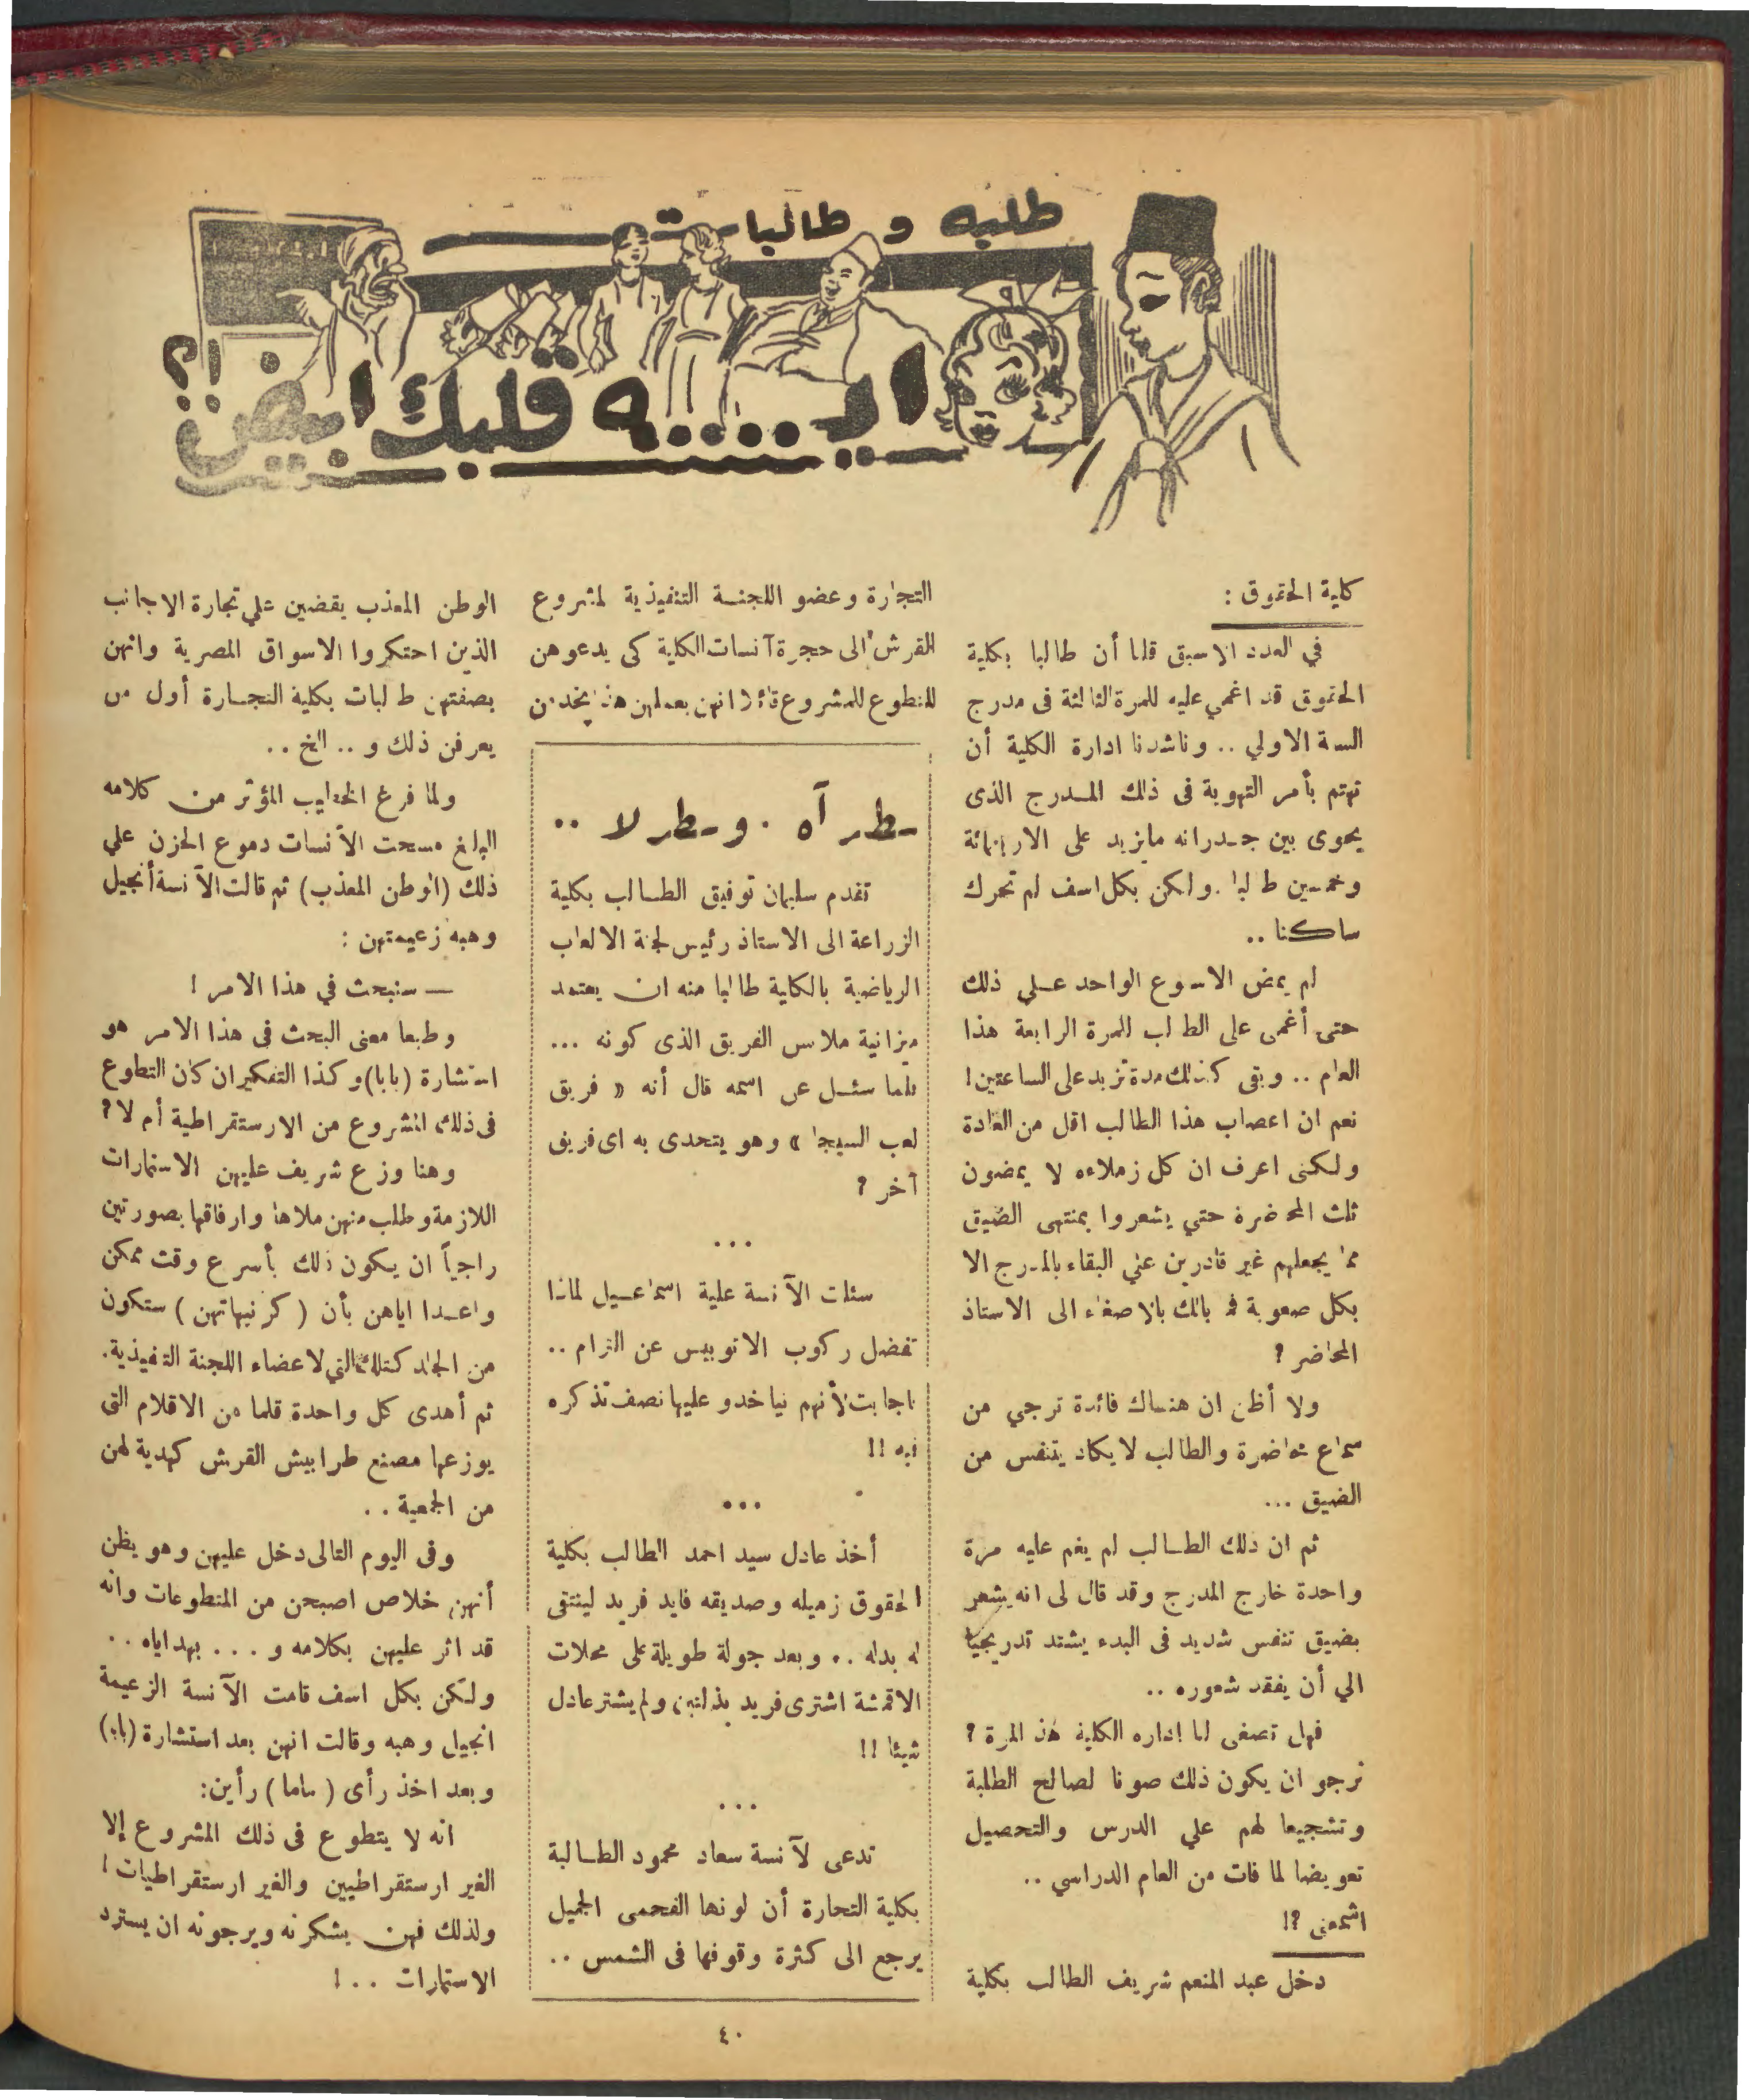 طلبه و طالبات
ايـــــه قلبك ابيض !؟
كلية الحقوق :
في العدد الاسبق قلنا أن طالبا بكلية
الحقوق قد اغمي عليه للمرة الثالثة فى مدرج
السنة الاولي .. وناشدنا ادارة الكلية أن
تهتم بأمر التهوية فى ذلك المدرج الذى
يحوى بين جدرانه مايزيد على الاربعمائة
وخمسين طالبا . ولكن بكل اسف لم تحرك
ساكنا ..
لم يمض الاسبوع الواحد على ذلك
حتى أغمى على الطالب للمرة الرابعة هذا
العام .. وبقى كذلك مدة تزيد على الساعتين !
نعم ان اعصاب هذا الطالب اقل من العادة
ولكنى اعرف ان كل زملاءه لا يمضون
ثلث المحاضرة حتي يشعروا بمنتهى الضيق
مما يجعلهم غير قادرين علي البقاء بالمدرج الا
بكل صعوبة فما بالك بالاصغاء الى الاستاذ
المحاضر ؟
ولا أظن ان هنـاك فائدة ترجي من
سماع محاضرة والطالب لا يكاد يتنفس من
الضيق ...
ثم ان ذلك الطـالب لم يغم عليه مرة
واحدة خارج المدرج وقد قال لى انه يشعر
بضيق تنفس شديد فى البدء يشتد تدريجيا
الي أن يفقد شعوره ..
فهل تصغى لنا اداره الكلية هذه المرة ؟
نرجو ان يكون ذلك صونا لصالح الطلبة
وتشجيعا لهم علي الدرس والتحصيل
تعويضا لما فات من العام الدراسي ..
اشمعنى ؟!
دخل عبد المنعم شريف الطالب بكلية
التجارة وعضو اللجنـة التنفيذية لمشروع
القرش الى حجرة آنسات الكلية كى يدعوهن
للتطوع للمشروع قائلا انهن بعملهن هذا يخدمن
طر آه . وطر لا ..
تقدم سليمان توفيق الطـالب بكلية
الزراعة الى الاستاذ رئيس لجنة الالعاب
الرياضية بالكلية طالبا منه ان يعتمد
ميزانية ملابس الفريق الذى كونه ...
فلما سئـل عن اسمه قال أنه « فريق
لعب السيجا » وهو يتحدى به اى فريق
آخر ؟
...
سئلت الآنسة علية اسماعـيل لماذا
تفضل ركوب الاتوبيس عن الترام ..
فاجابت لأنهم نياخدو عليها نصف تذكره
فيه !!
...
أخذ عادل سيد احمد الطالب بكلية
الحقوق زميله وصديقه فايد فريد لينتقى
له بدله .. وبعد جولة طويلة على محلات
الاقمشة اشترى فريد بذلتين ولم يشتر عادل
شيئا !!
...
تدعى لآنسة سعاد محمود الطـالبة
بكلية التجارة أن لونها الفحمى الجميل
يرجع الى كثرة وقوفها فى الشمس ..
الوطن المعذب يقضين علي تجارة الاجانب
الذين احتكروا الاسواق المصرية وانهن
بصفتهن طالبات بكلية التجـارة أول من
يعرفن ذلك و .. الخ ..
ولما فرغ الخطيب المؤثر من كلامه
البالغ مسحت الآنسات دموع الحزن علي
ذلك (الوطن المعذب) ثم قالت الآنسة أنجيل
وهبه زعيمتهن :
— سنبحث في هذا الامر !
وطبعا معنى البحث فى هذا الامر هو
استشارة (بابا) وكذا التفكير ان كان التطوع
فى ذلك المشروع من الارستقراطية أم لا ؟
وهنا وزع شريف عليهن الاستمارات
اللازمة وطلب منهن ملاها وارفاقها بصورتين
راجياً ان يكون ذلك بأسرع وقت ممكن
واعـدا اياهن بأن ( كرنيهاتهن ) ستكون
من الجلد كتلك التي لاعضاء اللجنة التنفيذية .
ثم أهدى كل واحدة قلما من الاقلام التى
يوزعها مصنع طرابيش القرش كهدية لهن
من الجمعية ..
وفى اليوم التالى دخل عليهن وهو يظن
أنهن خلاص اصبحن من المتطوعات وانه
قد اثر عليهن بكلامه و ... بهداياه ..
ولكن بكل اسف قامت الآنسة الزعيمة
انجيل وهبه وقالت انهن بعد استشارة (بابا)
وبعد اخذ رأى ( ماما ) رأين :
انه لا يتطوع فى ذلك المشروع إلا
الغير ارستقراطيين والغير ارستقراطيات !
ولذلك فهن يشكرنه ويرجونه ان يسترد
الاستمارات .. !
٤٠